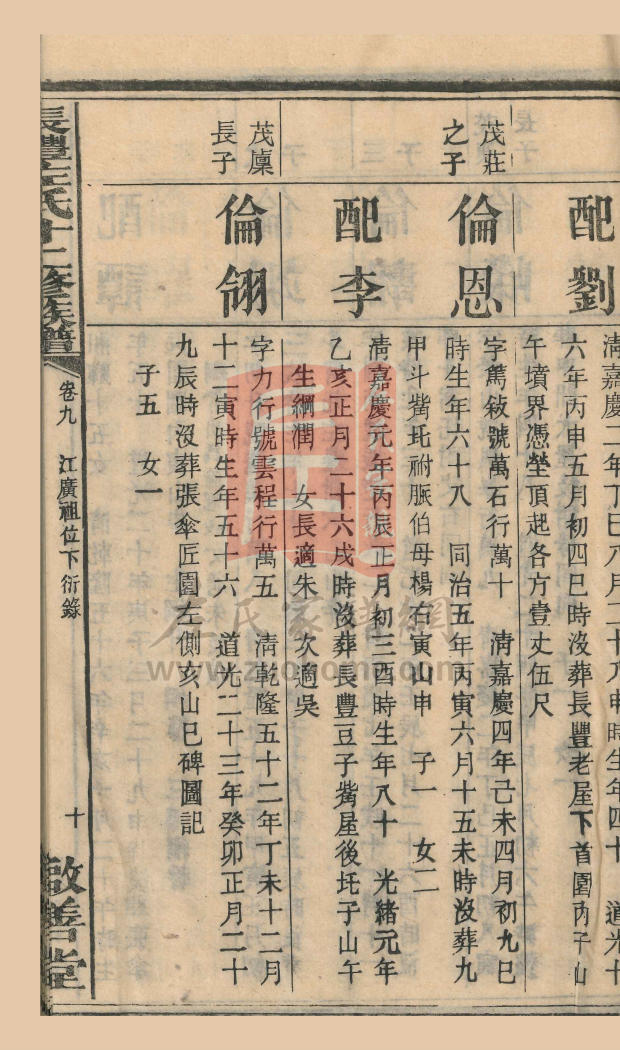 配劉
清嘉慶二年丁巳八月二十八申時生年四十 道光十
六年丙申五月初四巳時沒葬長豐老屋下首園內子山
午墳界憑塋頂起各方壹丈伍尺
茂莊
之子
倫恩
字篤敘號萬石行萬十 清嘉慶四年己未四月初九巳
時生年六十八 同治五年丙寅六月十五未時沒葬九
甲斗觜坉祔脈伯母楊右寅山申 子一 女二
配李
清嘉慶元年丙辰正月初三酉時生年八十 光緒元年
乙亥正月二十六戌時沒葬長豐豆子觜屋後坉子山午
生綱潤 女長適朱 次適吳
茂廩
長子
倫翎
字力行號雲程行萬五 清乾隆五十二年丁未十二月
十二寅時生年五十六 道光二十三年癸卯正月二十
九辰時沒葬張傘匠園左側亥山巳碑圖記
子五 女一
長豐左氏十二修族譜
卷九 江廣祖位下衍錄
十
啟善堂
左氏家譜網
www.zuojiapu.com